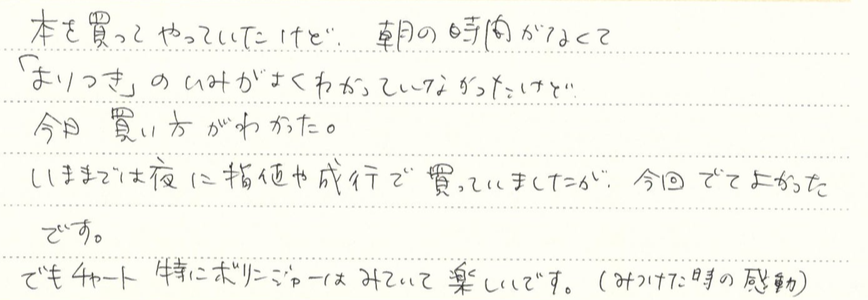 本を買ってやっていたけど、朝の時間がなくて
「よりつき」のいみがよくわかっていなかったけど
今日 買い方がわかった。
いままでは夜に指値や成行で買っていましたが、今回 でてよかった
です。
でもチャート 特にボリンジャーはみていて楽しいです。(みつけた時の感動)